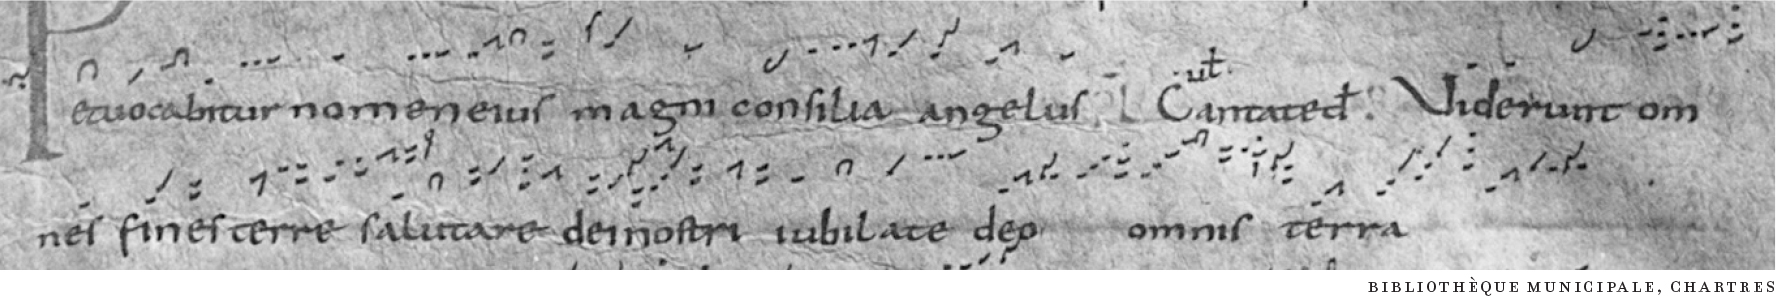 P
et vocabitur nomen eius magni consilia angelus Cantate d̄ Viderunt om
ut̄
nes fines terre salutare dei nostri iubilate deo omnis terra
BIBLIOTHÈQUE MUNICIPALE, CHARTRES